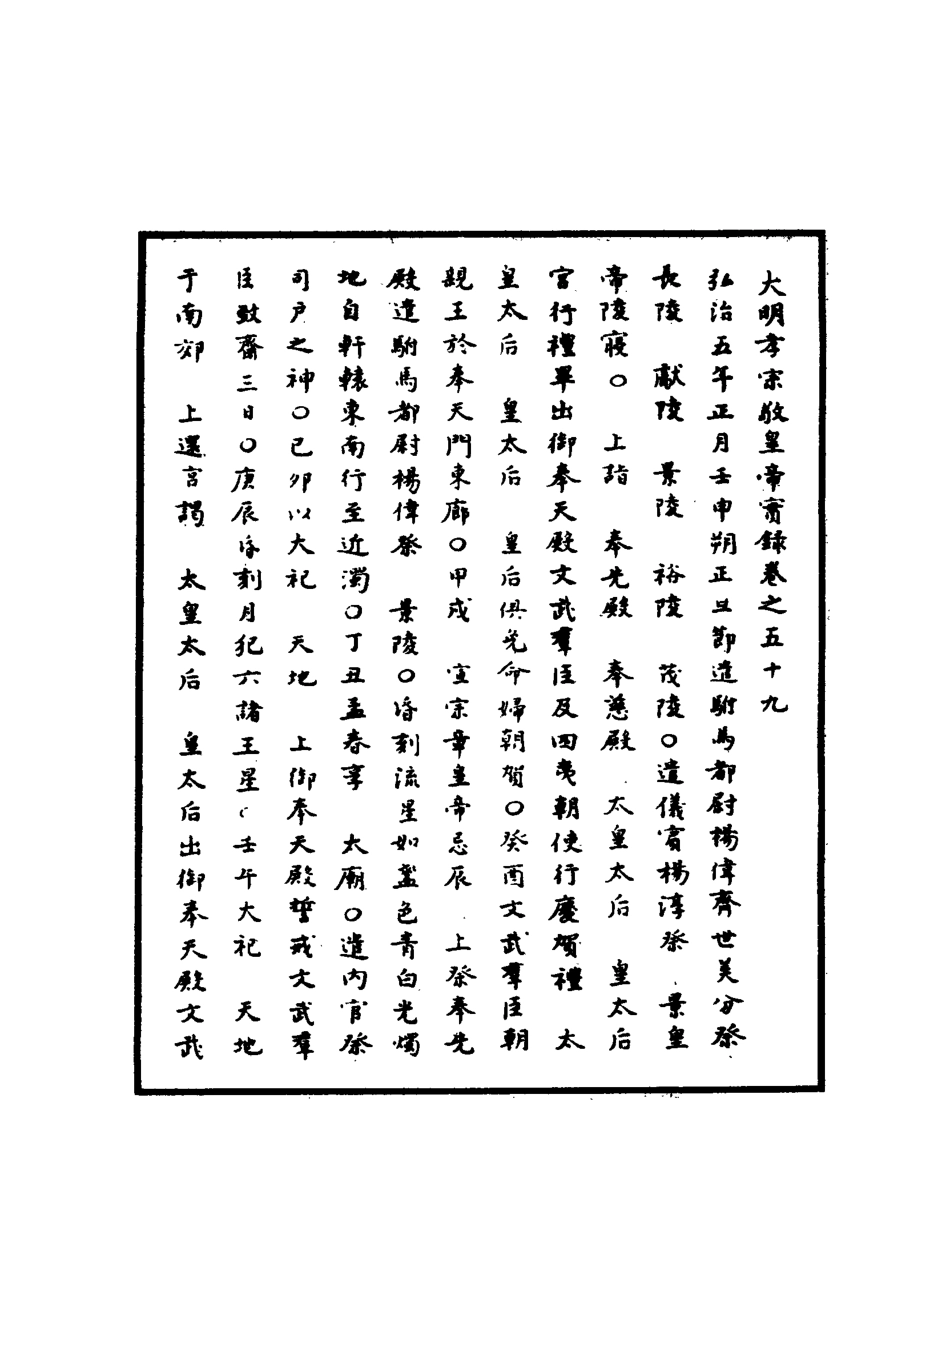 大明孝宗敬皇帝實錄卷之五十九
弘治五年正月壬申朔正旦節遣駙馬都尉楊偉齊世美分祭
長陵　獻陵　景陵　裕陵　茂陵○遣儀賓楊淳祭　景皇
帝陵寢○　上詣　奉先殿　奉慈殿　太皇太后　皇太后
宮行禮畢出御奉天殿文武羣臣及四夷朝使行慶賀禮　太
皇太后　皇太后　皇后俱免命婦朝賀○癸酉文武羣臣朝
親王於奉天門東廊○甲戌　宣宗章皇帝忌辰　上祭奉先
殿遣駙馬都尉楊偉祭　景陵○昏刻流星如盞色青白光燭
地自軒轅東南行至近濁○丁丑孟春享　太廟○遣內官祭
司戶之神○己卯以大祀　天地　上御奉天殿誓戒文武羣
臣致齋三日○庚辰昏刻月犯六諸王星○壬午大祀　天地
于南郊　上還宮謁　太皇太后　皇太后出御奉天殿文武